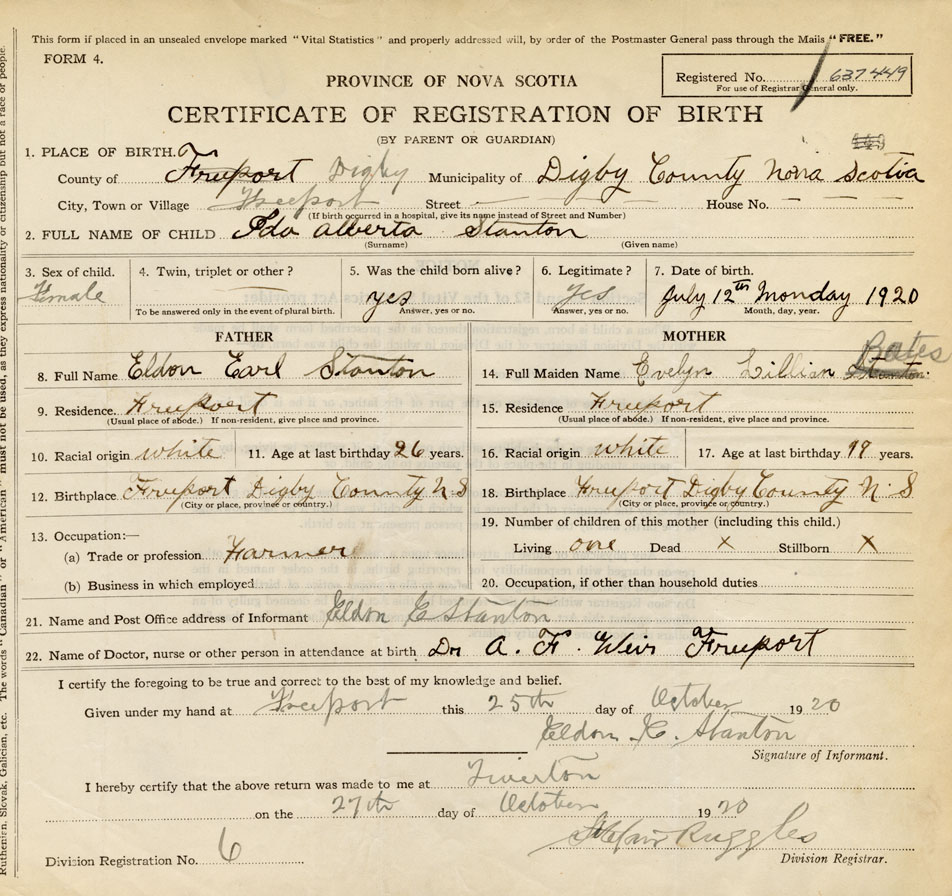 This form if placed in an unsealed envelope marked "Vital Statistics" and properly addressed will, by order of the Postmaster General pass through the Mails "FREE."
FORM 4.
Registered No. 637449
For use of Registrar General only.
PROVINCE OF NOVA SCOTIA
CERTIFICATE OF REGISTRATION OF BIRTH
(BY PARENT OR GUARDIAN)
1. PLACE OF BIRTH.
County of Freeport Digby Municipality of Digby County Nova Scotia
City, Town or Village Freeport Street — House No. — — —
(If birth occurred in a hospital, give its name instead of Street and Number)
2. FULL NAME OF CHILD Ida Alberta Stanton
(Surname) (Given name)
3. Sex of child. 4. Twin, triplet or other? 5. Was the child born alive? 6. Legitimate? 7. Date of birth.
Female — yes yes July 12th Monday 1920
To be answered only in the event of plural birth. Answer, yes or no. Answer, yes or no. Month, day, year.
FATHER
8. Full Name Eldon Earl Stanton
9. Residence. Freeport
(Usual place of abode.) If non-resident, give place and province.
10. Racial origin white 11. Age at last birthday 26 years.
12. Birthplace Freeport Digby County N S
(City or place, province or country.)
13. Occupation:—
(a) Trade or profession Farmer
(b) Business in which employed
MOTHER
Bates
14. Full Maiden Name Evelyn Lillian Stanton
15. Residence Freeport
(Usual place of abode.) If non-resident, give place and province.
16. Racial origin white 17. Age at last birthday 19 years.
18. Birthplace Freeport Digby County N. S
(City or place, province or country.)
19. Number of children of this mother (including this child.)
Living one Dead X Stillborn X
20. Occupation, if other than household duties
21. Name and Post Office address of Informant Eldon E Stanton
22. Name of Doctor, nurse or other person in attendance at birth Dr A. F. Weir Freeport
I certify the foregoing to be true and correct to the best of my knowledge and belief.
Given under my hand at Freeport this 25th day of October 1920
Eldon E. Stanton
Signature of Informant.
I hereby certify that the above return was made to me at Tiverton
on the 27th day of October 1920
Ruggles
Division Registration No. 6 Division Registrar.
Ruthenian, Slovak, Galician, etc. The words "Canadian" or "American" must not be used, as they express nationality or citizenship but not a race or people.